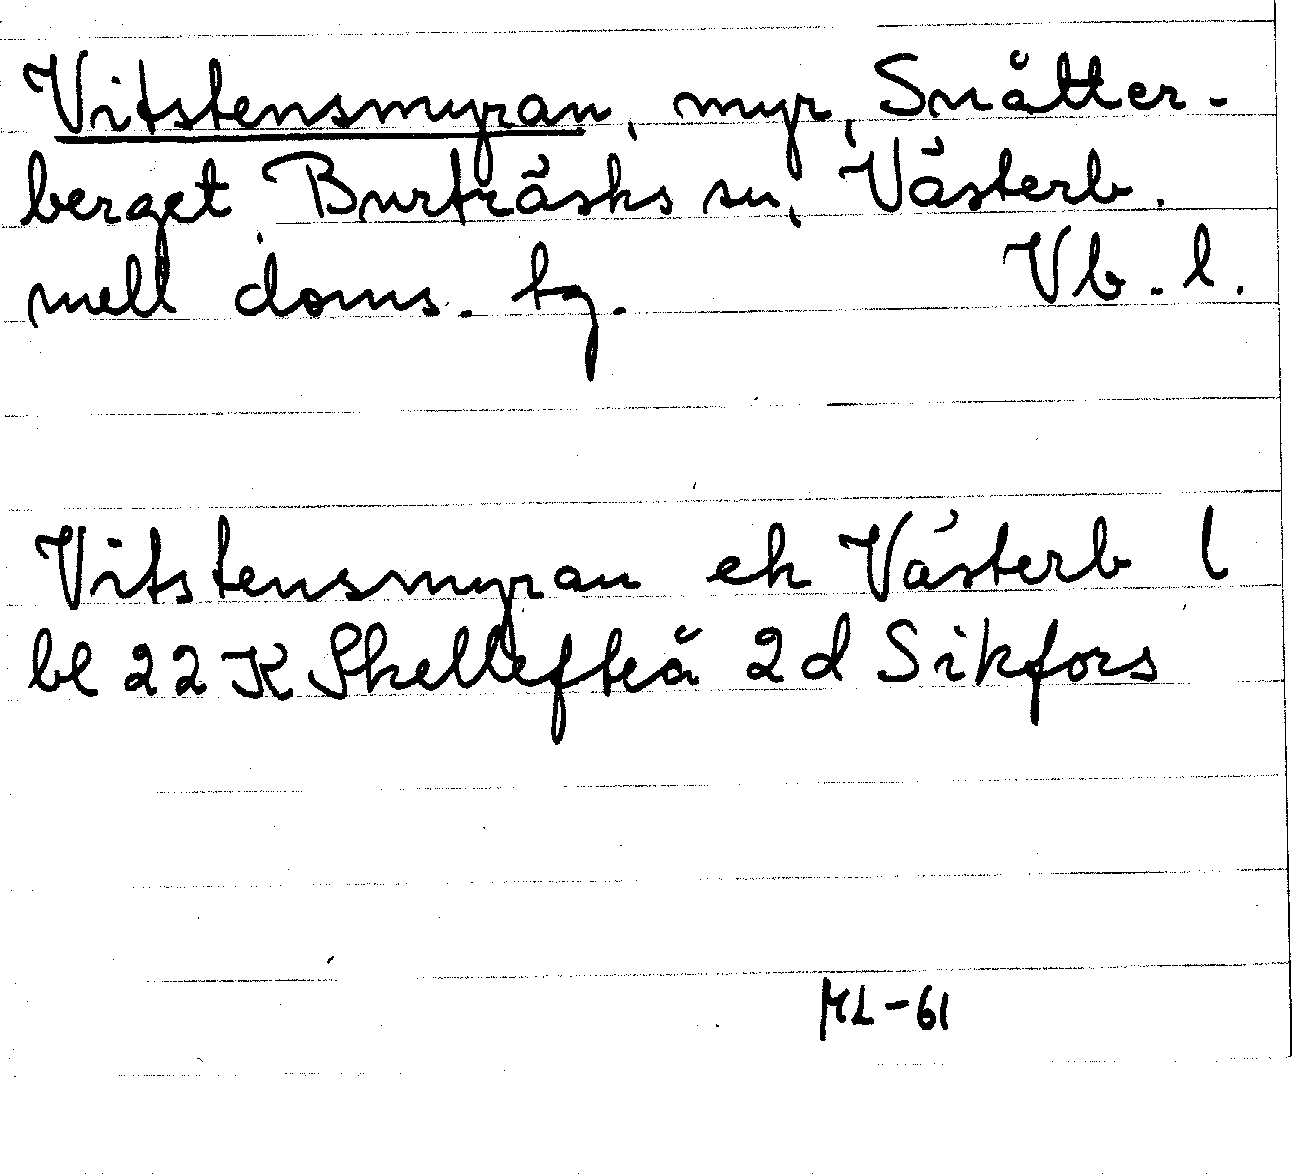 Vitstensmyran, myr, Snåtter-
berget, Burträsks sn, Västerb.
mell doms. hg. Vb. l.
Vitstensmyran ek Västerb l
bl 22 K Skellefteå 2d Sikfors
ML-61